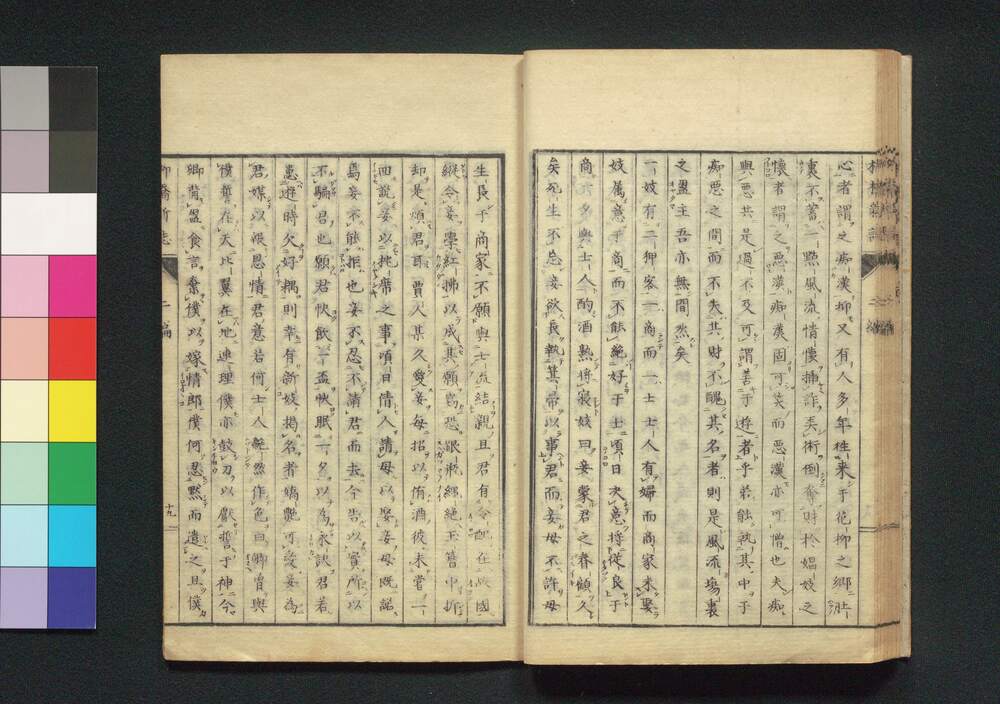 心者謂之痴漢抑又有人多年往来于花柳之郷肚
裏不蓄一點風流情懐挿詐美術倒奪財於娼妓之
懐者謂之惡漢痴漢固可笑而惡漢亦可憎也夫痴
與惡共是過不及可謂善于遊者乎弟能執其中于
痴惡之間而不失其財不醜其名者則是風流場裏
之盟主吾亦無間然矣
一妓有二狎客一商而一士士人有婦而商家未娶
妓属意于商而不能絶好于士頃日決意將從良于
商一夕與士人酌酒熟將寢妓曰妾蒙君之眷顧久
矣死生不忘妾欲長執箕帚以事君而妾母不許母
生長于商家不願與士流結親且君有令配在故國
縦令妾學紅拂以成其願窃恐銀漸綆絶玉簪中折
却是煩君耳賈人某久愛妾每招以侑酒彼未嘗一
回説妾以挑帶之事頃日倩人請母以娶妾母既諾
焉妾不能拒也妾不忍不請君而去今告以實所以
不騙君也願君快飲一盃快眠一夕以為永訣君若
惠遊時欠好耦則幸有新妓揭名者嬌艷可愛妾為
君媒以報恩情君意若何士人艴然作色曰卿曾與
僕誓在天比翼在地連理僕亦皷刀以獻誓于神今
卿背盟食言奪僕以嫁情郎僕何忍黙而遣之且僕
柳橋新誌 二編
十九